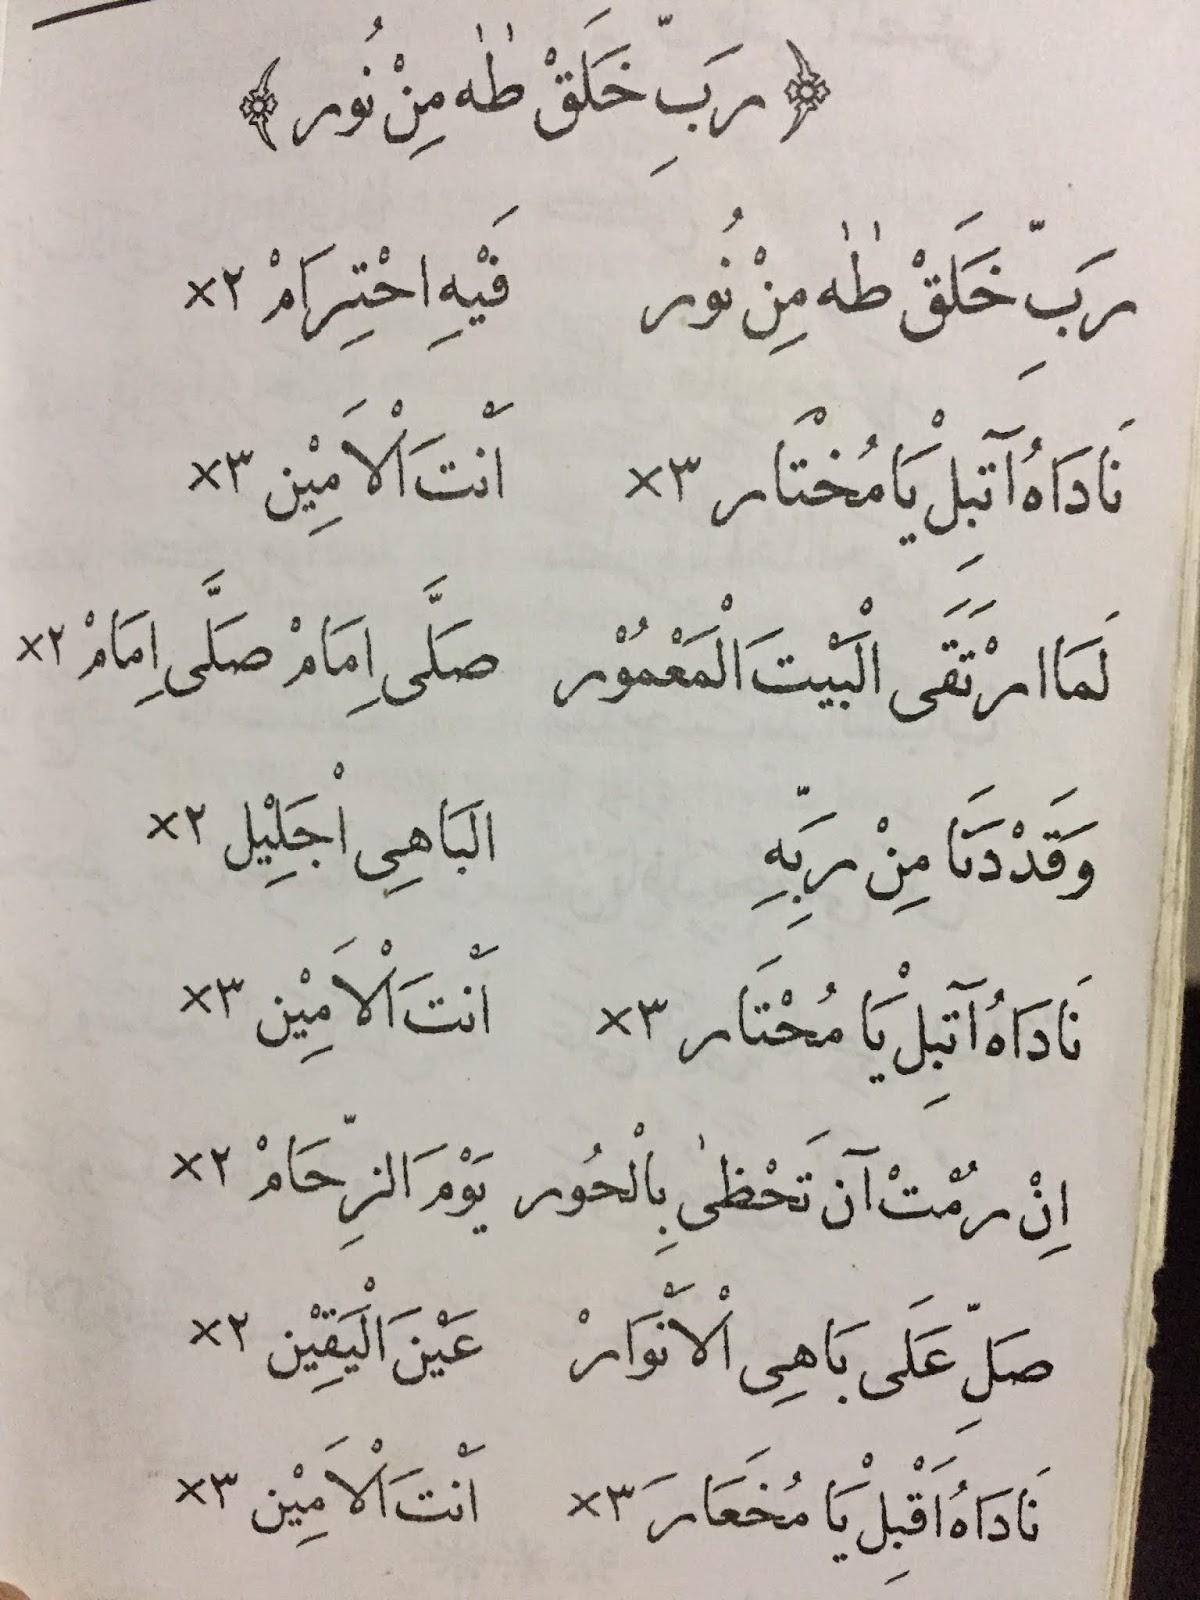 ﴿ رَبِّ خَلَقْ طٰهٰ مِنْ نُور ﴾
رَبِّ خَلَقْ طٰهٰ مِنْ نُور فَيْهِ احْتِرَامْ ×٢
نَادَاهُ آتبِلْ يَا مُخْتَار ×٣ اَنْتَ الْاَمِيْن ×٣
لَمَا ارْتَقَى الْبَيْتَ الْمَعْمُوْر صَلَّى اِمَامْ صَلَّى اِمَامْ ×٢
وَقَدْ دَنَا مِنْ رَبِّهِ البَاهِى اْجَلِيْل ×٢
نَادَاهُ آتبِلْ يَا مُخْتَار ×٣ اَنْتَ الْاَمِيْن ×٣
اِنْ رُمْتْ آن تَحْظٰى بِالْحُور يَوْمَ الزِّحَامْ ×٢
صَلِّ عَلَى بَاهِى الْاَنْوَارْ عَيْنَ الْيَقِيْن ×٢
نَادَاهُ اَقْبِلْ يَا مُخَعَارَ ×٣ اَنْتَ الْاَمِيْن ×٣